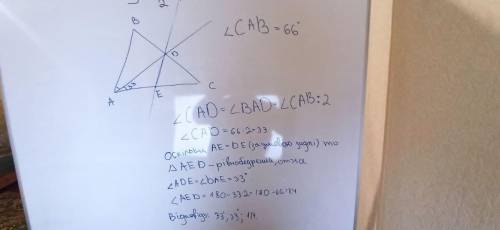 2
B
∠CAB=66°
D
C
A
E
∠CAD=∠BAD=∠CAB:2
∠CAD=66:2=33
Оскільки AE=DE (за умовою задачі) то
△AED-рівнобедрений, отже
∠ADE=∠DAE=33°
∠AED=180-33·2=180-66=114
Відповідь: 33°, 33°, 114